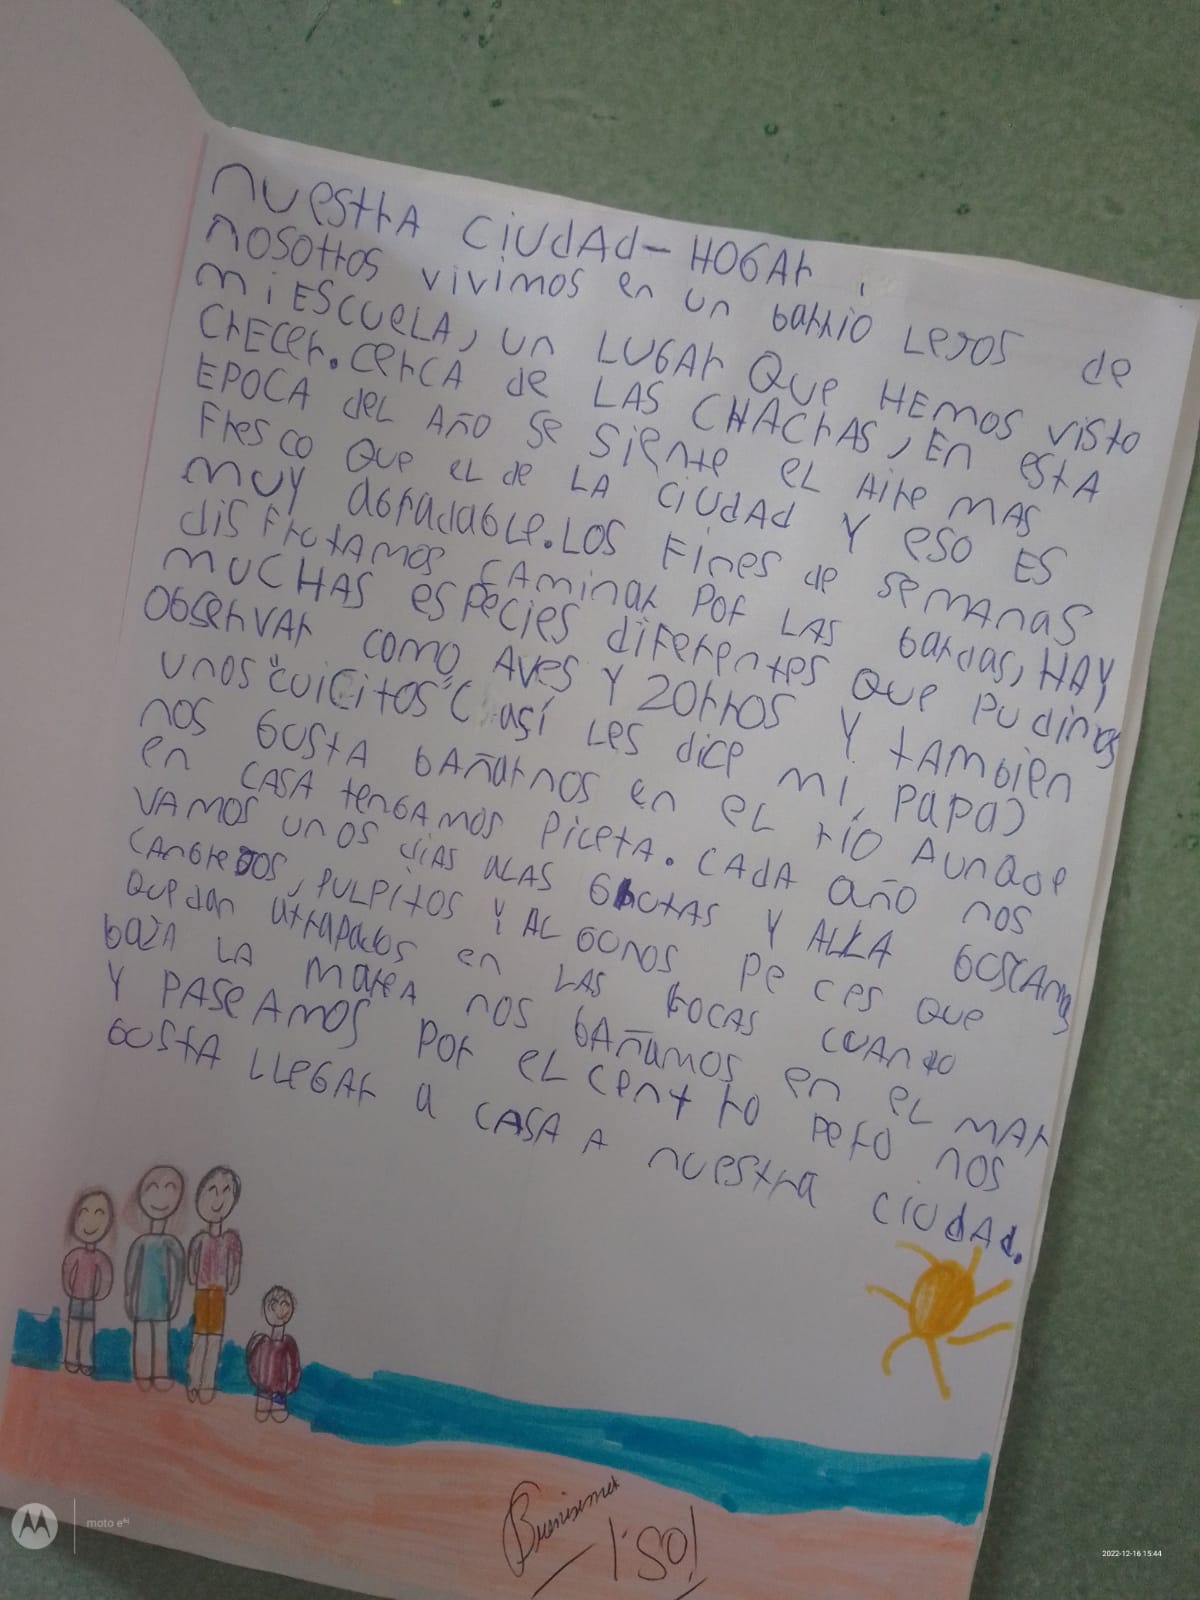 nuestra CiUdAd-HOGAr
nosotros vivimos en un barrio Lejos de
mi ESCUELA, un LUGAr QUE HEMOS visto
CrECer. CerCA de LAS CHACrAS, En ESTA
EPOCA dEL AÑO se siente el Aire MAS
Fresco que el de LA CIUdAd Y eso ES
MUY agradable. LOS Fines de semanas
disfrutamos CAMinar Por LAS bardas, HAY
MUCHAS especies diferentes QUE Pudimos
Observar como AVES Y ZOrros Y tAmbien
unos "cuicitos" (así Les dice mi PAPA)
nos GUSTA bañarnos en el río Aunque
en CASA tenGAmos Piceta. CAdA año nos
VAMOS unos dias ALAS Grutas Y ALLA bUSCAmos
CAngrejos, PULPitos Y ALGUnos Peces QUE
quedan atrapados en LAS rocas CUAndo
baja LA MAreA nos bañamos en el MAr
Y PASEAmos Por el Centro Pero nos
GUSTA LLEGAr a CASA A nuestra CiUdAd.
¡SO!
moto e⁶ⁱ
2022-12-16 15:44